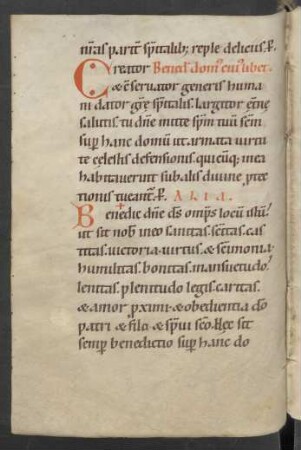 nr̃as parit̃ spĩtalib; reple deliciis. P̲.
Creator Bened̃ dom᷒ cui᷒ libet.
& c̃seruator generis huma
ni dator gr̃e sp̃italis. largitor et̃ne
salutis. tu dñe mitte sp̃m tuũ sc̃m
suꝑ hanc domũ. ut armata uirtu
te cęlestis defensionis. quicũq; in ea
habitauerint sub alis diuine ꝓtec
tionis tueant̃. P̲. ALIA.
Benedic dñe d̃s omp̃s locũ istũ.
ut sit nob̃ in eo sanitas. sc̃itas. cas
titas. uictoria. uirtus. & sc̃imonia.
humilitas. bonitas. mansuetudo.
lenitas. plenitudo legis. caritas.
& amor ꝓximi. & obedientia do
patri & filio & sp̃ui sc̃o. &
sit
semꝑ benedictio suꝑ hanc do